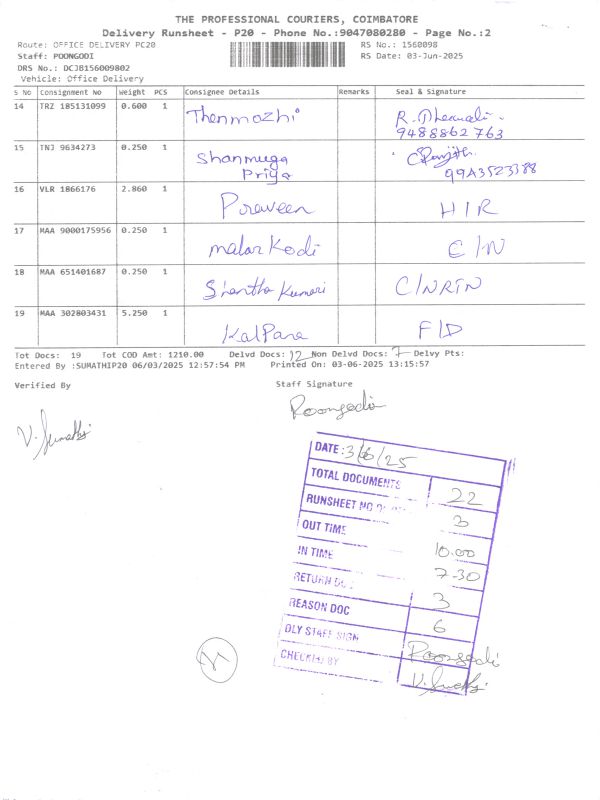 THE PROFESSIONAL COURIERS, COIMBATORE
Delivery Runsheet - P20 - Phone No.:9047080280 - Page No.:2
Route: OFFICE DELIVERY PC20 RS No.: 1560098
Staff: POONGODI RS Date: 03-Jun-2025
DRS No.: DCJB156009802
Vehicle: Office Delivery
S No Consignment No Weight PCS Consignee Details Remarks Seal & Signature
14 TRZ 185131099 0.600 1 Thenmozhi
9488862763
15 TNJ 9634273 0.250 1 Shanmuga
Priya
16 VLR 1866176 2.860 1 Praveen H/R
17 MAA 9000175956 0.250 1 malar Kodi C/N
18 MAA 651401687 0.250 1 Shantha Kumari C/NRTN
19 MAA 302803431 5.250 1 KalPana F/D
Tot Docs: 19 Tot COD Amt: 1210.00 Delvd Docs: 12 Non Delvd Docs: 7 Delvy Pts:
Entered By :SUMATHIP20 06/03/2025 12:57:54 PM Printed On: 03-06-2025 13:15:57
Verified By Staff Signature
Poongodi
V. Sumathi
DATE: 3/6/25
TOTAL DOCUMENTS 22
RUNSHEET NO 3
OUT TIME 10.00
IN TIME 7-30
RETURN DOC 3
REASON DOC 6
DLY STAFF SIGN Poongodi
CHECKED BY V. Sumathi